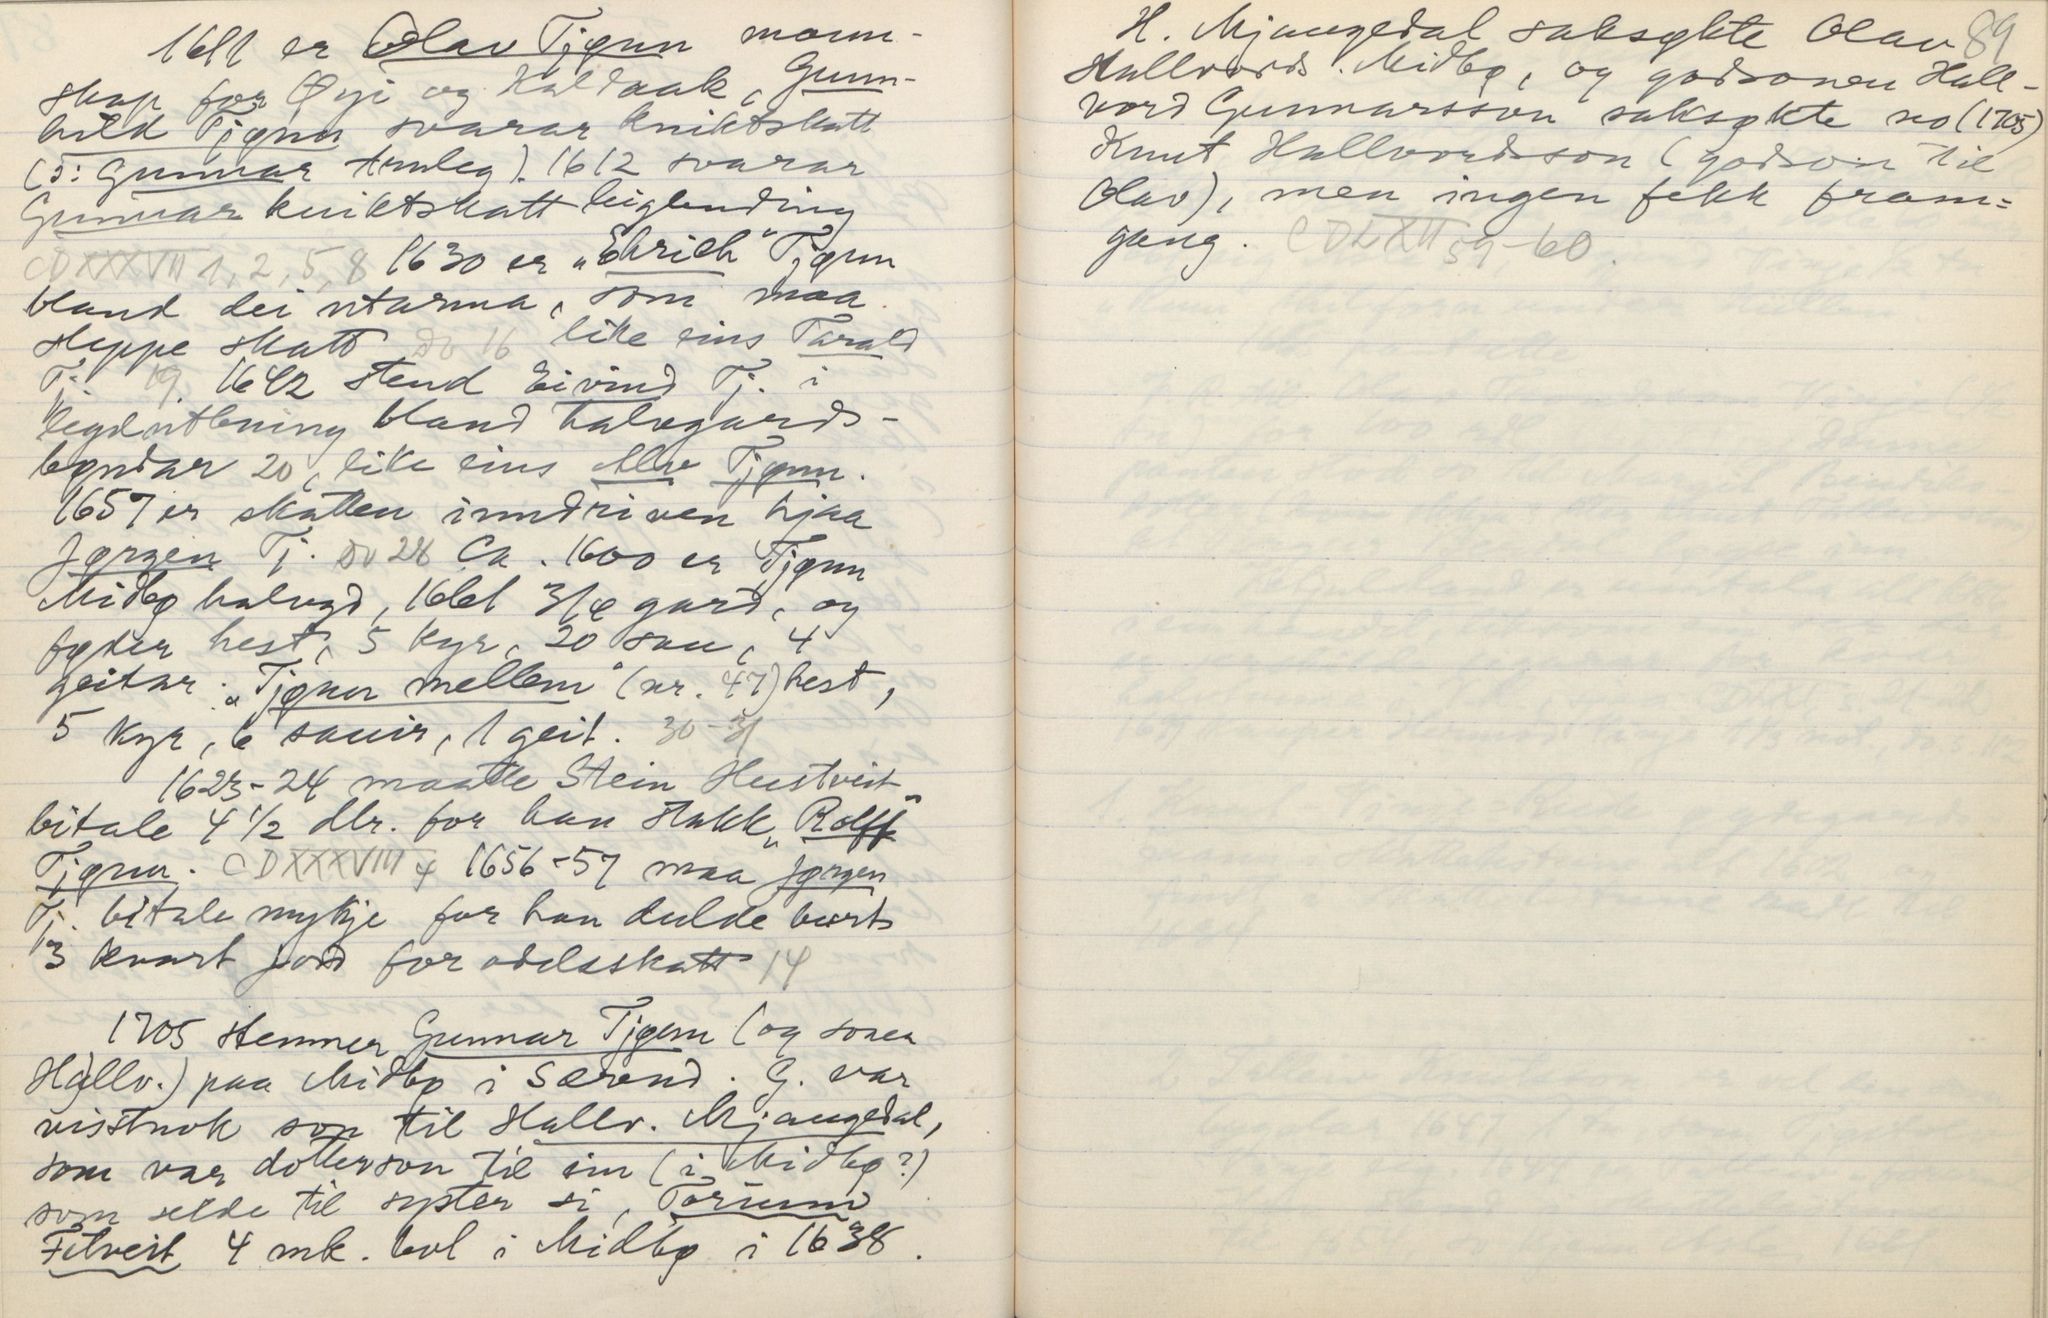 1611 er Olav Tjønn mann-
skap for Øyi og Kaldaak, Gunn-
hild Tjønn svarar kniktskatt
(ɔ: Gunnar Armleg). 1612 svarar
Gunnar kniktskatt leiglending
CDXXXVII 1, 2, 5, 8 1630 er „Ehrich" Tjønn
bland dei utarma, som maa
sleppe skatt Do 16 like eins Tarald
Tj. 19. 1642 stend Eivind Tj. i
legdutlening bland halvgards-
bøndar 20, like eins Alav Tjønn.
1657 er skatten inndriven hjaa
Jørgen Tj. Do 28 Ca. 1600 er Tjønn
Midbø halvgd, 1661 3/4 gard, og
føder hest, 5 kyr, 20 sau, 4
geitar. „Tjønn mellem" (nr. 47) hest,
5 kyr, 6 sauir, 1 geit. 30-31
1623-24 maatte Stein Hustveit
bitale 4 1/2 dlr. for han stakk „Rolff"
Tjønn. CDXXXVIII 4 1656-57 maa Jørgen
Tj. bitale mykje for han dulde burt
3 kvart jord for odelsskatt 14
1705 stemner Gunnar Tjønn (og sonen
Hallv.) paa Midbø i Særend. G. var
vistnok son til Hallv. Mjaugedal,
som var dotterson til ein (i Midbø?)
som selde til syster si, Torunn
Filveit 4 mk. bol i Midbø i 1638.
89
H. Mjaugedal saksøkte Olav
Hallvords. Midbø, og godsonen Hall-
vord Gunnarsson saksøkte no (1705)
Knut Hallvordsson (godson til
Olav), men ingen fekk fram=
gang. CDLXII 59-60.